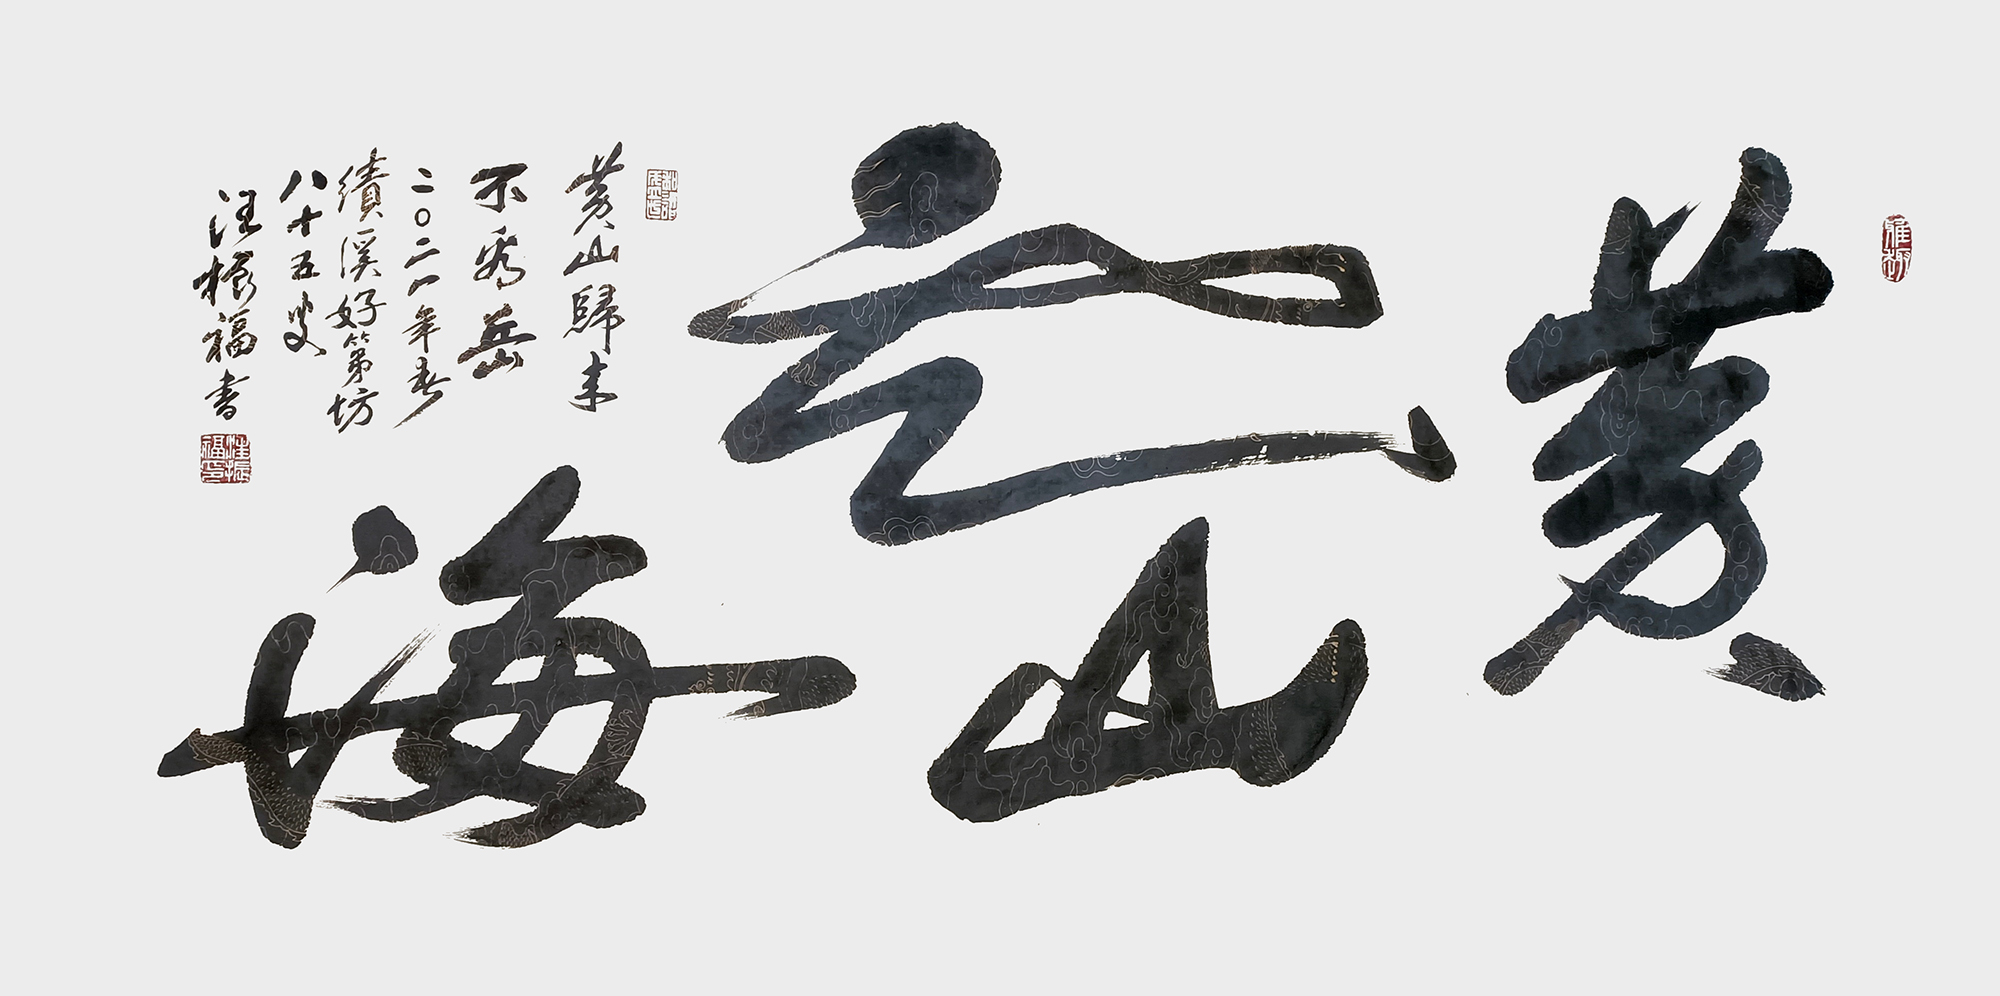 黄山云海
黄山歸来
不看岳
二〇二一年春
績溪好第坊
八十五叟
汪振福書
雅趣
汪振福印